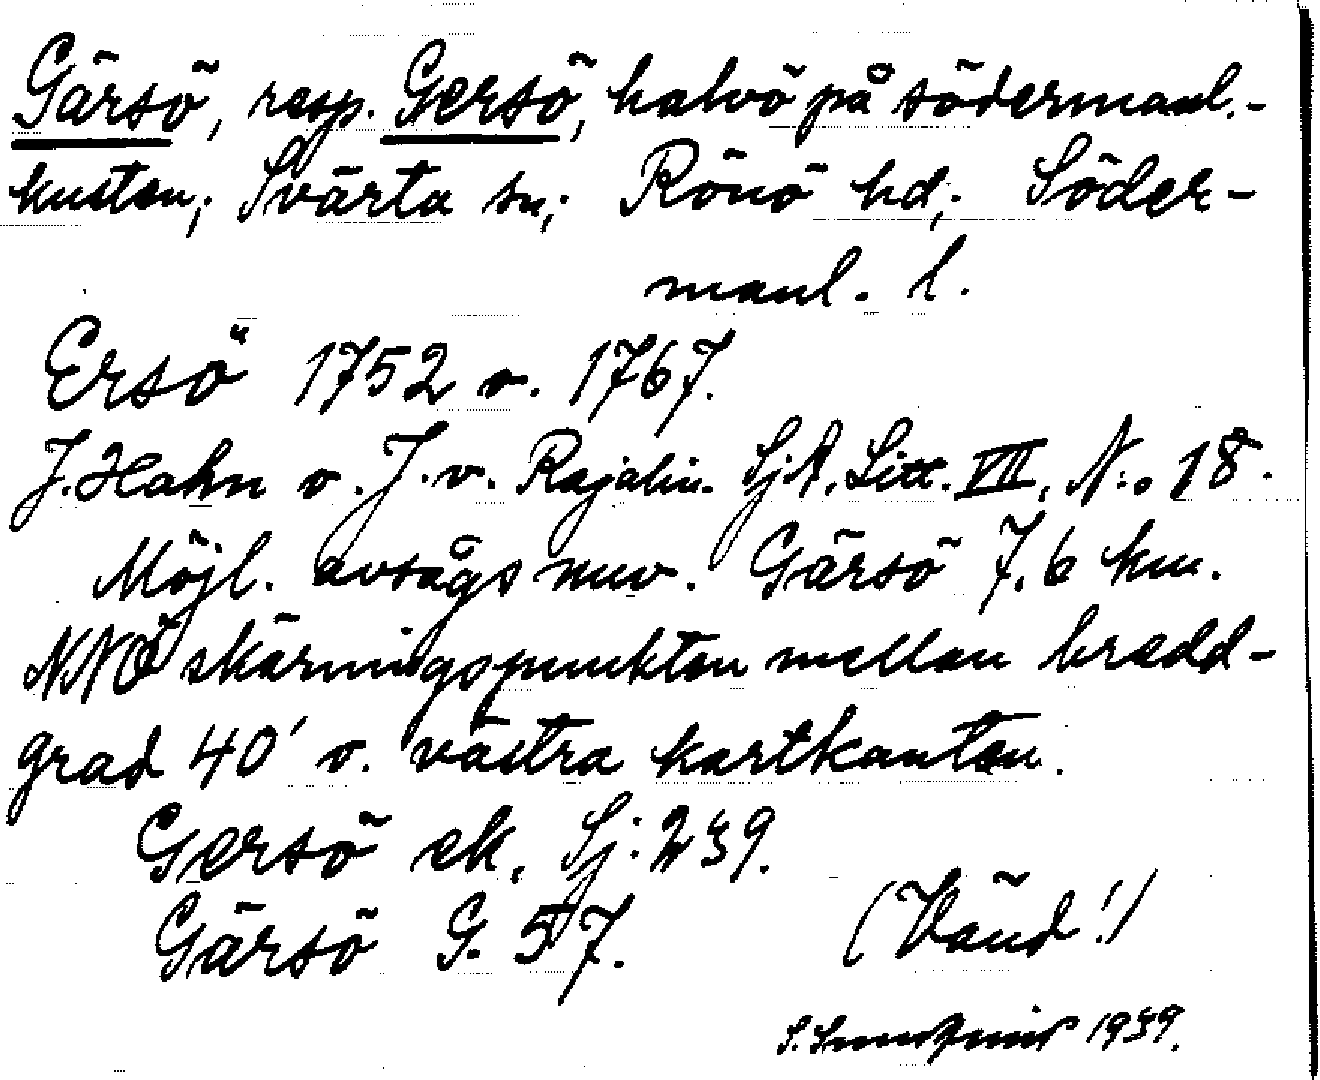 Gärsö, resp. Gersö, halvö på södermanl.-
kusten; Svärta sn; Rönö hd; Söder-
manl. l.
Ersö 1752 o. 1767.
J. Hahn o. J. v. Rajalin. SjA, Litt. VII, N:o 18.
Möjl. avsågs nuv. Gärsö 7,6 km.
NNÖ skärningspunkten mellan bredd-
grad 40' o. västra kartkanten.
Gersö ek. Sj: 239.
Gärsö G. 57.
(Vänd!)
S. Sundqvist 1939.